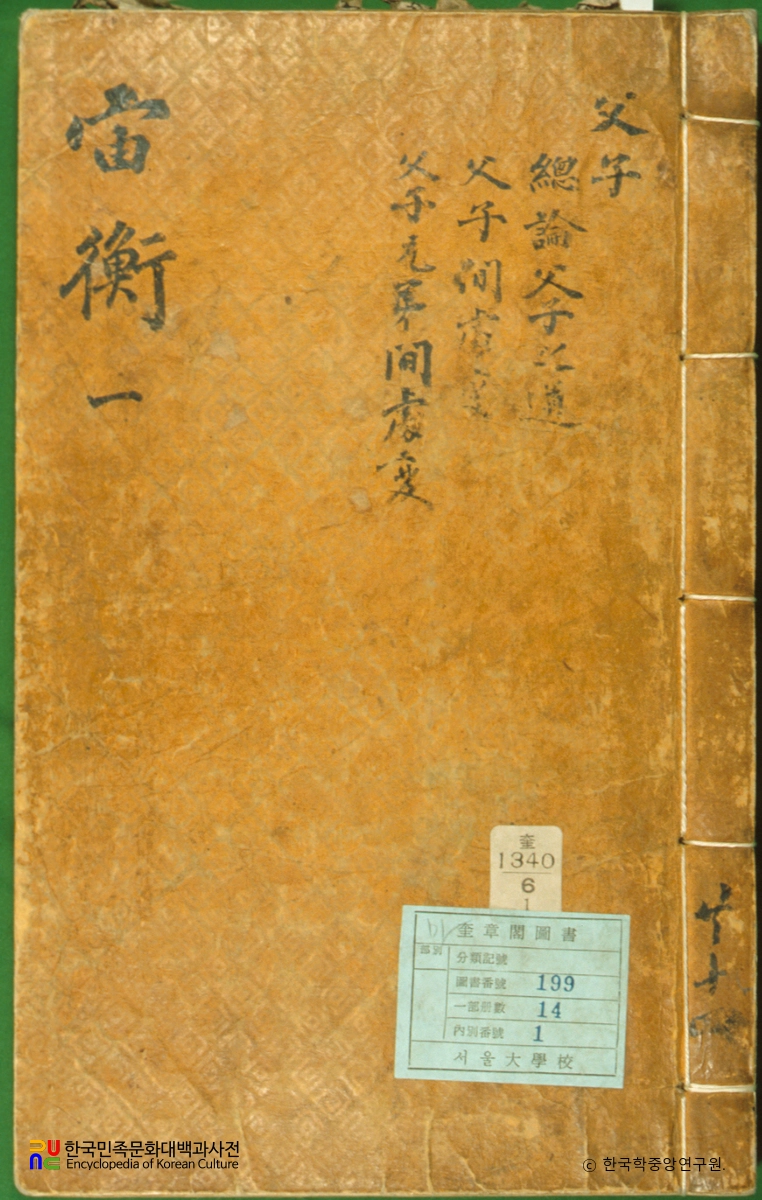 宙衡 一
父子
總論父子之道
父子間處變
父子兄弟間處變
共十四
奎
1340
6
1
奎章閣圖書
部別
分類記號
圖書番號 199
一部册數 14
內別番號 1
서울大學校
한국민족문화대백과사전
Encyclopedia of Korean Culture
© 한국학중앙연구원.